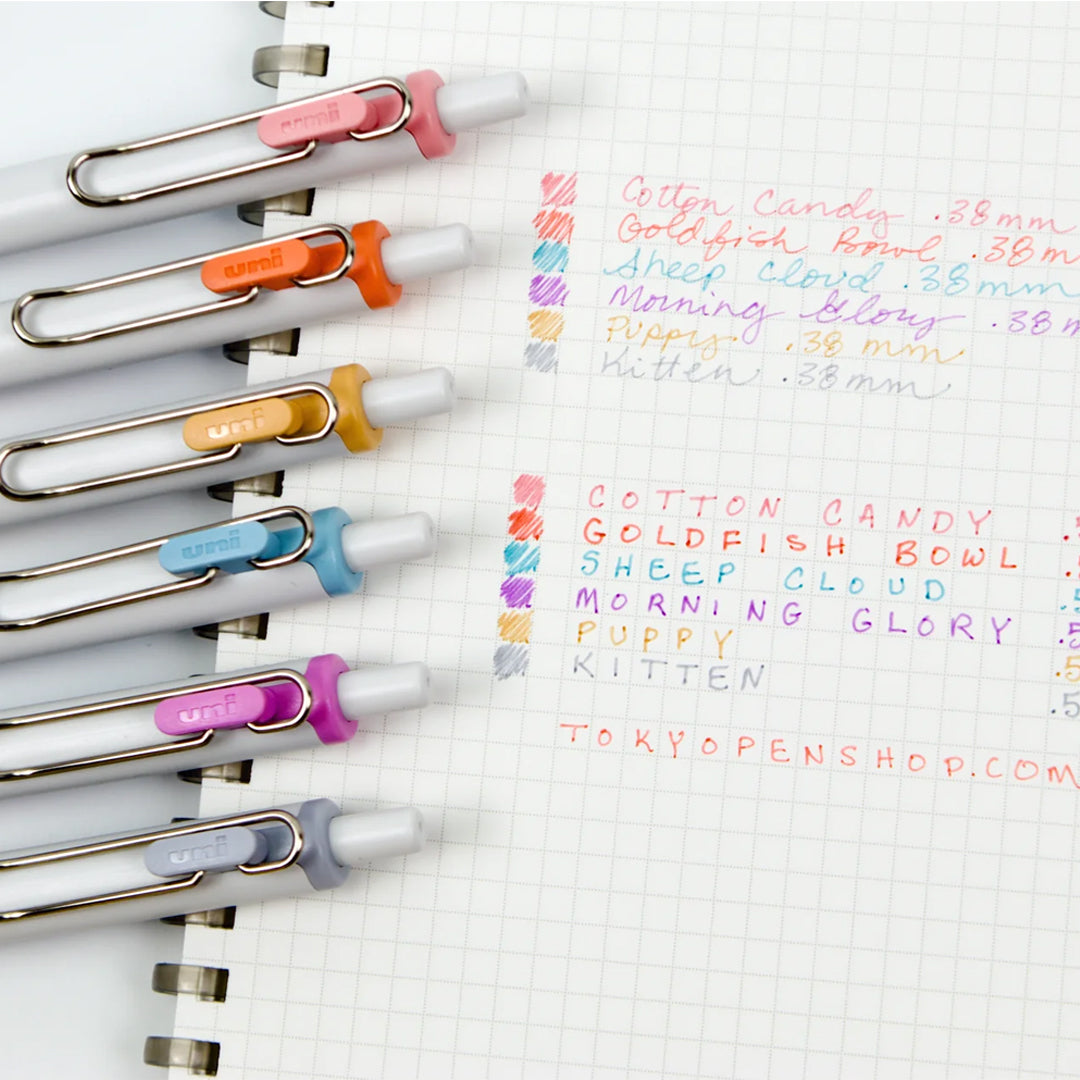 uni
uni
uni
uni
uni
uni
Cotton Candy .38mm
Goldfish Bowl .38m
Sheep Cloud .38mm
Morning Glory .38m
Puppy .38 mm
Kitten .38mm
COTTON CANDY .5
GOLDFISH BOWL .5
SHEEP CLOUD .5
MORNING GLORY .5
PUPPY .5
KITTEN .5
TOKYOPENSHOP.COM